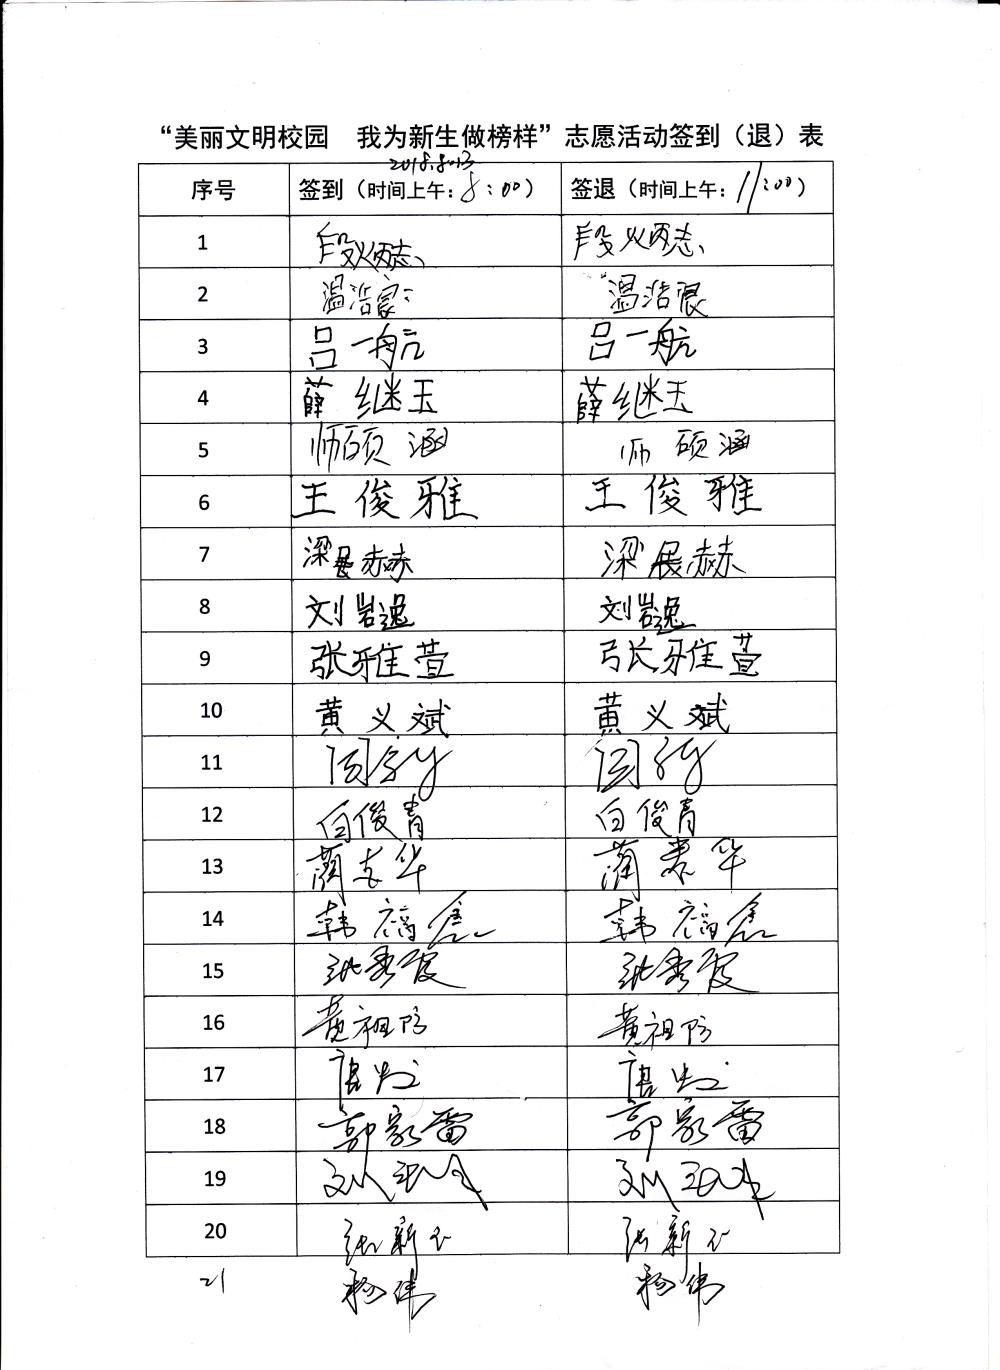 “美丽文明校园 我为新生做榜样”志愿活动签到（退）表
2018.8.13
序号 签到（时间上午：8：00） 签退（时间上午：11：00）
1 段 段
2 温浩 温浩
3 吕一航 吕一航
4 薛继玉 薛继玉
5 师硕涵 师硕涵
6 王俊雅 王俊雅
7 梁展赫 梁展赫
8 刘岩逸 刘岩逸
9 张雅萱 张雅萱
10 黄义斌 黄义斌
11
12 白俊青 白俊青
13 蔺 华 蔺 华
14 韩 韩
15
16 黄祖防 黄祖防
17 唐 唐
18 郭家雷 郭家雷
19 刘 刘
20 张新 张新
21 杨伟 杨伟